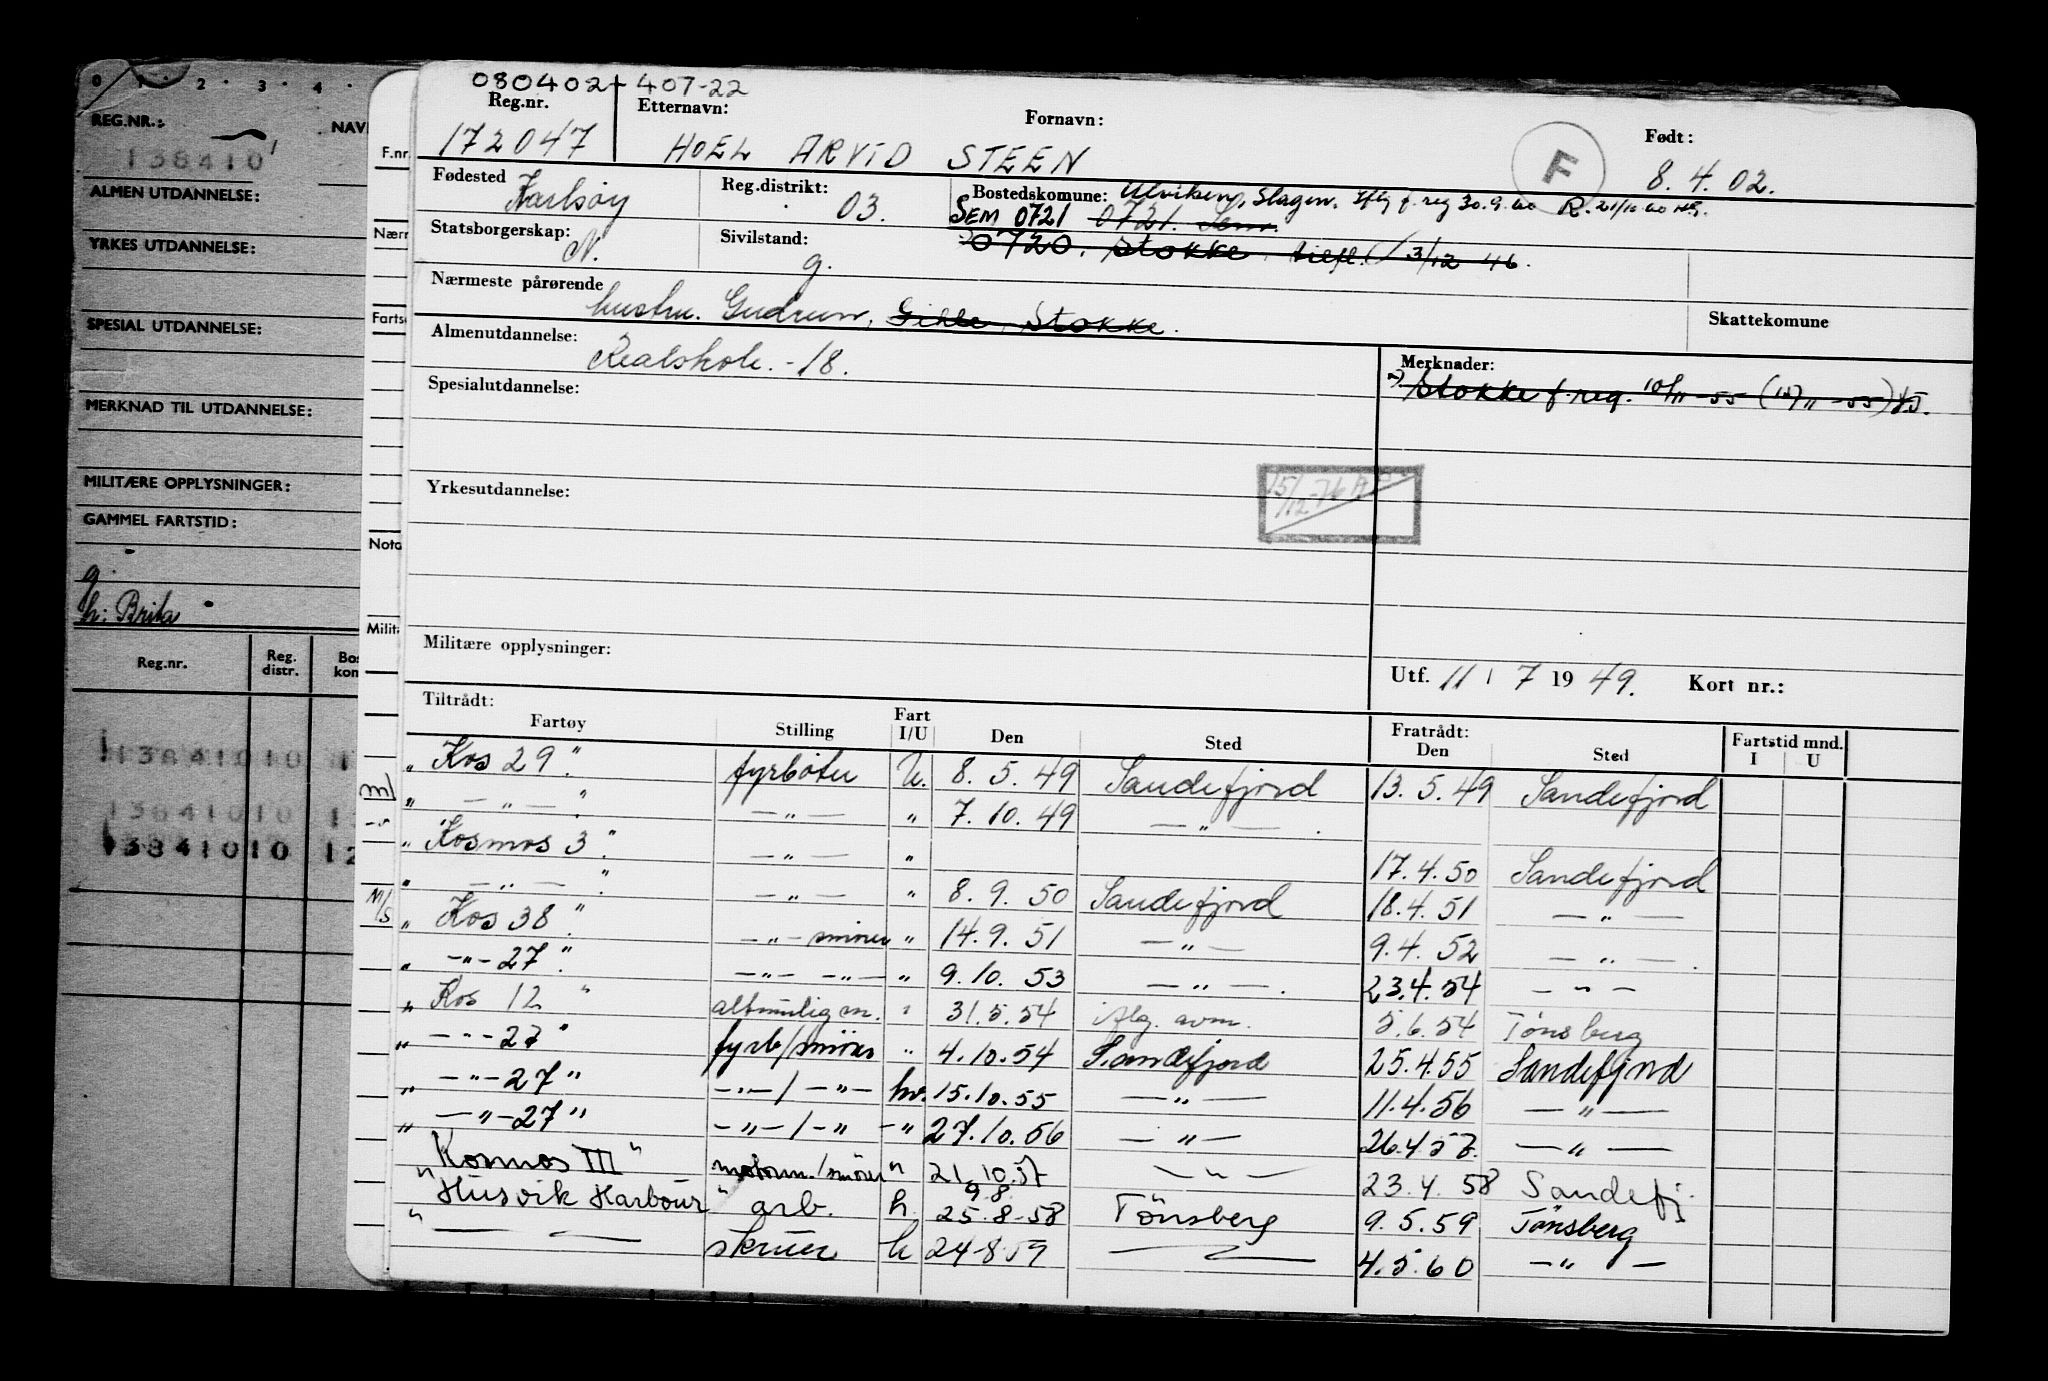 080402 407-22
Reg.nr. Etternavn: Fornavn: Født:
172047 HOEL ARVID STEEN F 8.4.02.
Fødested Karlsøy Reg.distrikt: 03. Bostedskomune: Ulviken, Slagen. f. reg 30.9.60 R. 21/10 60
SEM 0721 0721. Sem
Statsborgerskap: N. Sivilstand: g. 0720. Stokke. tilfl. 3/12 46.
Nærmeste pårørende
hustru. Gudrun, Gihle, Stokke. Skattekomune
Almenutdannelse: Realskole. -18. Merknader:
Stokke f. reg. 10/11-55 (10/11-55)
Spesialutdannelse:
Yrkesutdannelse: 15/12-76
Militære opplysninger: Utf. 11 / 7 1949. Kort nr.:
Tiltrådt: Fratrådt: Fartstid mnd.
Fartøy Stilling Fart I/U Den Sted Den Sted I U
" Kos 29." fyrbøter U. 8.5.49 Sandefjord 13.5.49 Sandefjord
" —"— ." —"— " 7.10.49 —"— .
" Kosmos 3." —"— " 17.4.50 Sandefjord
" —"— ." —"— " 8.9.50 Sandefjord 18.4.51 —"—
" Kos 38." —"— smører " 14.9.51 —"— 9.4.52 —"— .
" —"— 27." —"— —"— " 9.10.53 —"— . 23.4.54 —"—
" Kos 12 " altmulig m. " 31.5.54 Alg. avm. 5.6.54 Tønsberg
" —"— 27" fyrb/smører " 4.10.54 Sandefjord 25.4.55 Sandefjord
" —"— 27" —"— / —"— hv. 15.10.55 —"— 11.4.56 —"—
" —"— 27" —"— / —"— —" 27.10.56 —"— 26.4.57. —"—
" Kosmos III " motorm./smører " 21.10.57 —"— 23.4.58 Sandefj.
" Husvik Harbour " arb. h. 9.8 25.8-58 Tønsberg 9.5.59 Tønsberg
" —"— skruer h 24-8.59 —"— 4.5.60 —"—
0 1 2 3 4
REG.NR.: NAV
138410
ALMEN UTDANNELSE:
YRKES UTDANNELSE:
SPESIAL UTDANNELSE:
MERKNAD TIL UTDANNELSE:
MILITÆRE OPPLYSNINGER:
GAMMEL FARTSTID:
g.
h: Brita
Reg.nr. Reg. distr. Bos kon
13841010 1
13841010 1
13841010 12
F.nr
Nærr
Farts
Nota
Milit
m/
M/s